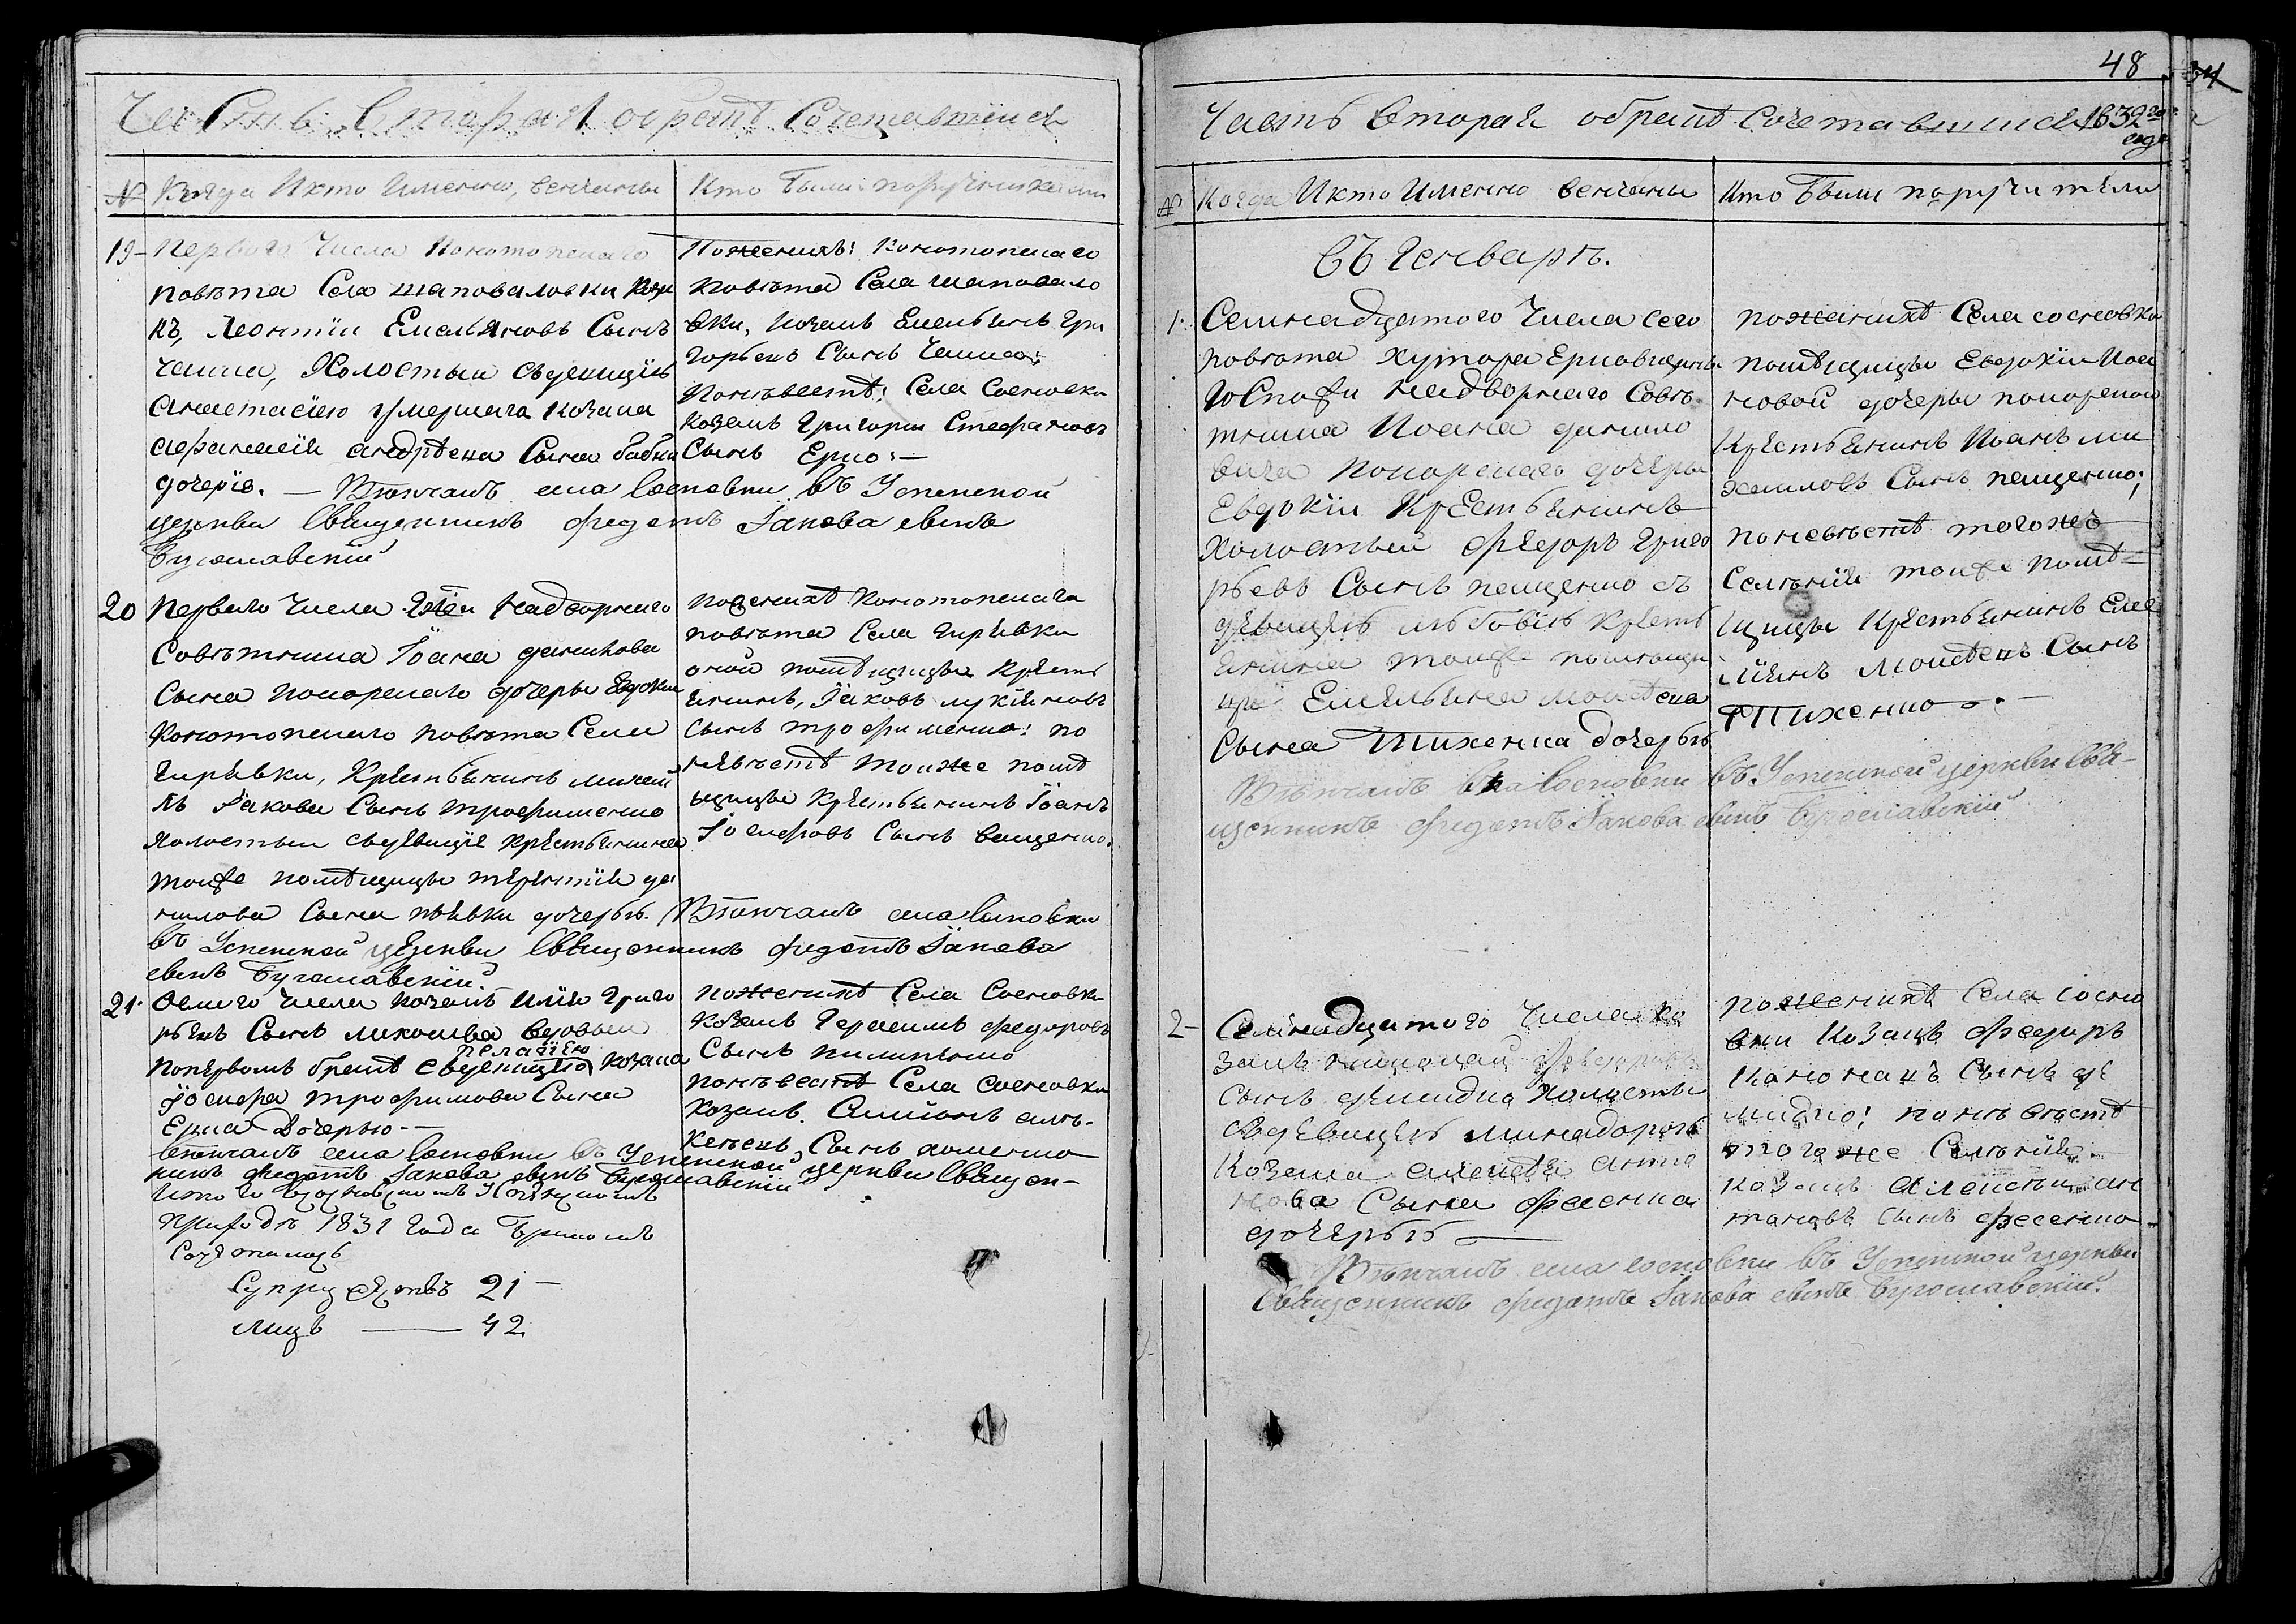 Часть Вторая о бракѣ Сочетавшихся
№ Когда И кто Именно, венчаны
Кто были поручниками
19- Первого Числа Конотопскаго
повѣта Села шаповаловки Коза
къ, Леонтій Емельяновъ Сынъ
Холостый съ девицію
Анастасіею умершаго козака
Андрѣева Сына бабки
дочерію. — Вѣнчалъ села Сосновки въ Успенской
церкви Священникъ Федотъ Іаковъ сынъ
Бугославскій
Поженихѣ: Конотопскаго
повѣта Села шаповало
вки, Козакъ Емельянъ Гри
горьевъ Сынъ
Поневѣстѣ: Села Сосновки
козакъ Григорій Стефановъ
Сынъ Ерко: —
20 Первого Числа Надворнаго
Совѣтника Іоана данилова
Сына понорскаго дочеры Евдокіи
Конотопскаго повѣта Села
гиръвки, Крестьянинъ
Іакова Сынъ трофименко
Холостый съ девиціе Крестьянина
тойже помѣщицы терентія да
нилова Сына пѣвки дочерью. Вѣнчалъ села Сосновки
въ Успенской церкви Священникъ Федотъ Іакова
сынъ Бугославскій.
поженихѣ Конотопскаго
повѣта Села гирявки
оной помѣщицы Крестъ
янинъ, Іаковъ лукіяновъ
Сынъ трофименко: по
невѣстѣ тойже помѣ
щицы Крестьянинъ Іоанъ
Іосифовъ Сынъ ващенко.
21. Осмого числа козакъ Илія Григо
рьевъ Сынъ вдовый
поперьвомъ бракѣ съ девицею козака
пелагіею
Іосифа трофимова Сына
Ерка Дочерью —
вѣнчалъ села Сосновки въ Успенской церкви Священ-
никъ Федотъ Іакова сынъ Бугославскій
Итого
Приходѣ 1831 Года бракомъ
Сочеталось
Супружествъ 21 —
Лицъ — 42
поженихѣ Села Сосновки
козакъ Герасимъ федоровъ
Сынъ пилипенко
поневѣстѣ Села сосновки
козакъ Антонъ алѣ-
ксѣевъ Сынъ хоменко
48
34
Часть Вторая о бракѣ Сочетавшихся 1832го
года
№ Когда И кто Именно венчаны
Кто были поручители
Въ Генварѣ.
1. Семнадцатого Числа сего
повѣта хутора Ерковщины
Госпожи надворнаго Совѣ-
тника Иоана данило
вича понорскаго дочеры
Евдокіи Крестьянинъ
Холостый Федоръ Григо
рьевъ Сынъ пащенко съ
девицею любовію Кресть
янина тойже помѣщи
цы Емельяна моисѣева
Сына Тихенка дочерью
Вѣнчалъ села Сосновки въ Успенской церкви Свя-
щенникъ Федотъ Іакова сынъ Бугославскій
поженихѣ Села сосновки
помѣщицы Евдокіи Иоа
новой дочеры понорской
Крестьянинъ Иоанъ ми
хайловъ Сынъ пащенко;
поневѣстѣ тогожъ
Селенія тойже помѣ-
щицы Крестьянинъ Емел
иянъ Моисѣевъ Сынъ
Тихенко —
2- Семнадцатого Числа ко
закъ Федоровъ
Сынъ демидко холосты
съ девицею минадорою
Козака алексѣя анто
нова Сына фесенка
дочерью —
Вѣнчалъ села Сосновки въ Успенской церкви
Священникъ Федотъ Іакова сынъ Бугославскій.
поженихѣ Села сосно
вки козакъ Федоръ
Сынъ де
мидко; поневѣстѣ
тогоже Селенія
козакъ Алексѣи ан
тоновъ Сынъ фесенко